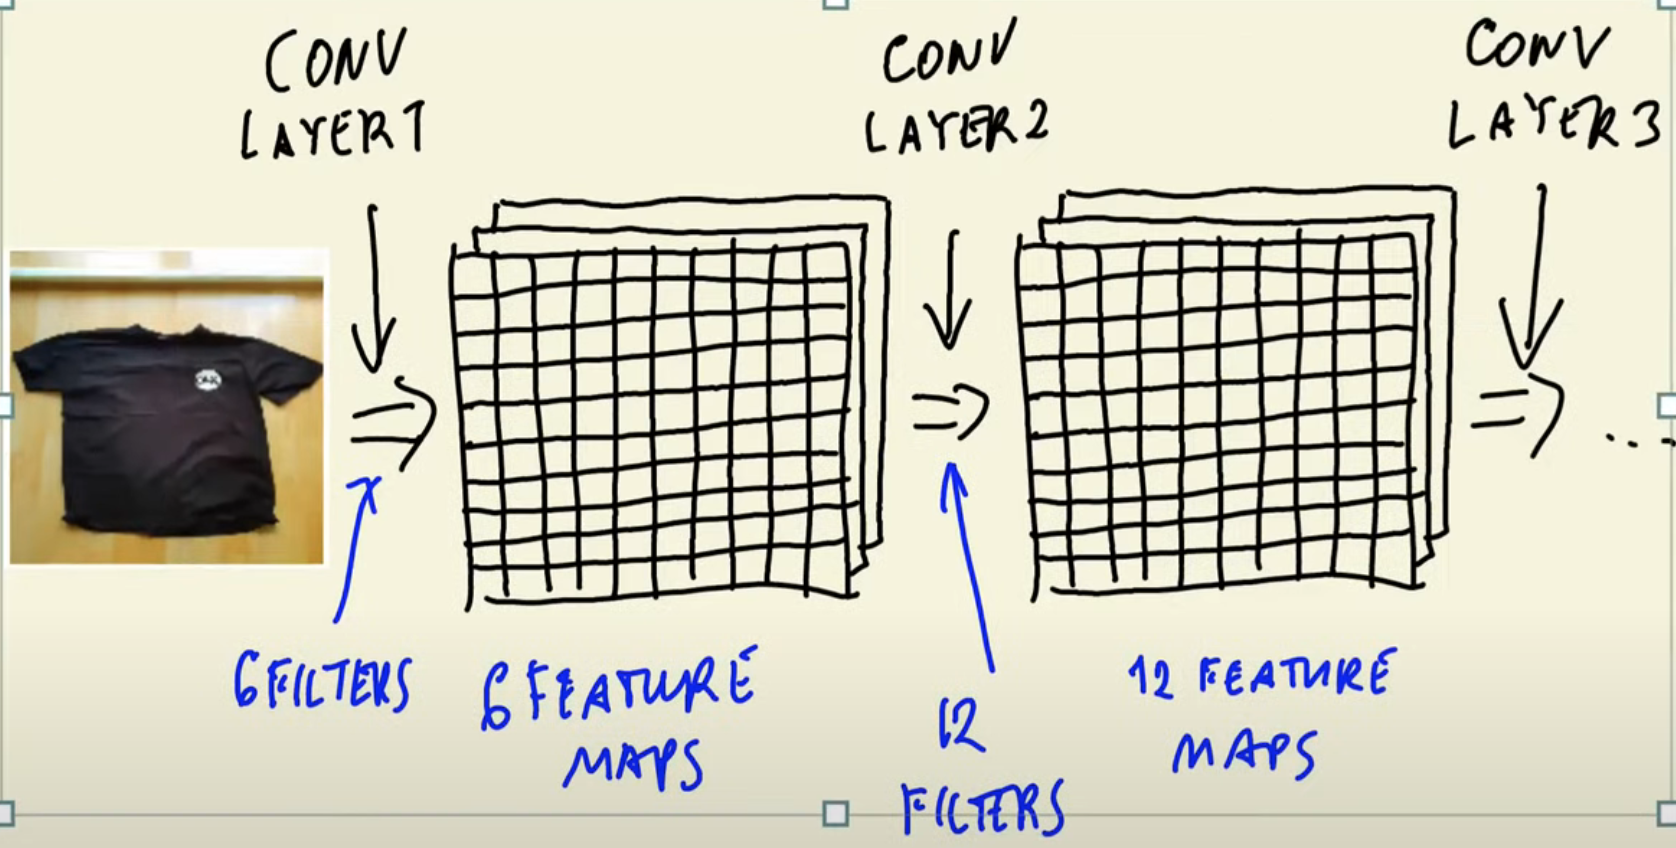 CONV
LAYER1
CONV
LAYER2
CONV
LAYER3
...
6 FILTERS
6 FEATURE
MAPS
12
FILTERS
12 FEATURE
MAPS